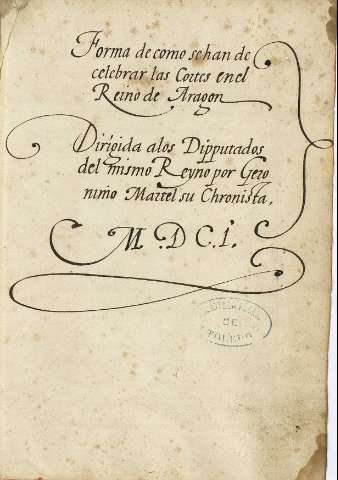 Forma de como se han de
celebrar las Cortes en el
Reino de Aragon
Dirigida a los Dipputados
del mismo Reyno por Gero
nimo Martel su Chronista.
M. D C. I.
DE
TOLEDO